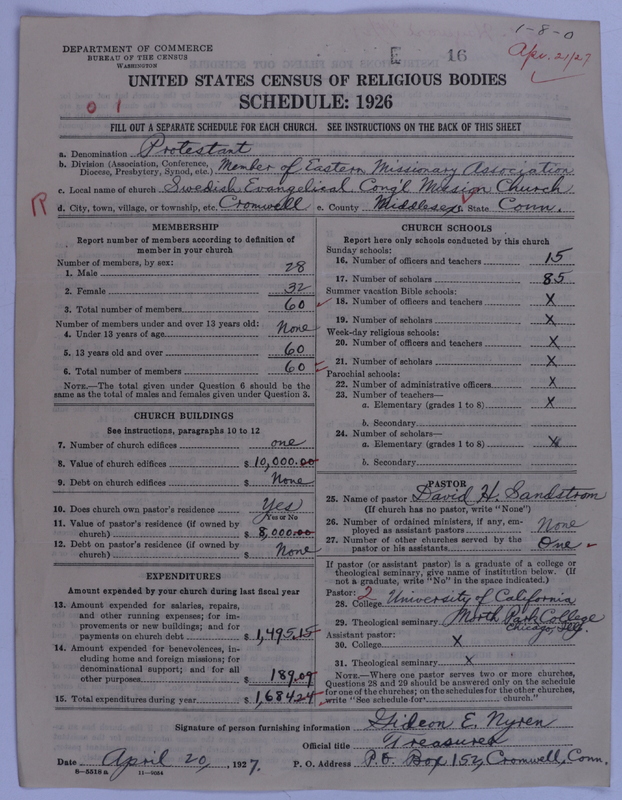 1-8-0
DEPARTMENT OF COMMERCE
BUREAU OF THE CENSUS
WASHINGTON
E 16
Apr. 21/27
UNITED STATES CENSUS OF RELIGIOUS BODIES
SCHEDULE: 1926
0 1
FILL OUT A SEPARATE SCHEDULE FOR EACH CHURCH. SEE INSTRUCTIONS ON THE BACK OF THIS SHEET
a. Denomination Protestant
b. Division (Association, Conference, Diocese, Presbytery, Synod, etc.) Member of Eastern Missionary Association
c. Local name of church Swedish Evangelical Congl Mission Church
R
d. City, town, village, or township, etc. Cromwell e. County Middlesex State Conn.
MEMBERSHIP
Report number of members according to definition of
member in your church
Number of members, by sex:
1. Male 28
2. Female 32
3. Total number of members 60
Number of members under and over 13 years old:
4. Under 13 years of age None
5. 13 years old and over 60
6. Total number of members 60
NOTE.—The total given under Question 6 should be the
same as the total of males and females given under Question 3.
CHURCH BUILDINGS
See instructions, paragraphs 10 to 12
7. Number of church edifices one
8. Value of church edifices $ 10,000.00
9. Debt on church edifices $ None
10. Does church own pastor's residence Yes
Yes or No
11. Value of pastor's residence (if owned by
church) $ 8,000.00
12. Debt on pastor's residence (if owned by
church) $ None
EXPENDITURES
Amount expended by your church during last fiscal year
13. Amount expended for salaries, repairs,
and other running expenses; for im-
provements or new buildings; and for
payments on church debt $ 1,495.15
14. Amount expended for benevolences, in-
cluding home and foreign missions; for
denominational support; and for all
other purposes $ 189.09
15. Total expenditures during year $ 1,684.24
CHURCH SCHOOLS
Report here only schools conducted by this church
Sunday schools:
16. Number of officers and teachers 15
17. Number of scholars 85
Summer vacation Bible schools:
18. Number of officers and teachers X
19. Number of scholars X
Week-day religious schools:
20. Number of officers and teachers X
21. Number of scholars X
Parochial schools:
22. Number of administrative officers X
23. Number of teachers—
a. Elementary (grades 1 to 8) X
b. Secondary
24. Number of scholars—
a. Elementary (grades 1 to 8) X
b. Secondary
PASTOR
25. Name of pastor David H. Sandstrom
(If church has no pastor, write "None")
26. Number of ordained ministers, if any, em-
ployed as assistant pastors None
27. Number of other churches served by the
pastor or his assistants One
If pastor (or assistant pastor) is a graduate of a college or
theological seminary, give name of institution below. (If
not a graduate, write "No" in the space indicated.)
Pastor: 2
28. College University of California
29. Theological seminary North Park College
Chicago, Ill.
Assistant pastor:
30. College X
31. Theological seminary X
NOTE.—Where one pastor serves two or more churches,
Questions 28 and 29 should be answered only on the schedule
for one of the churches; on the schedules for the other churches,
write "See schedule for church."
Signature of person furnishing information Gideon E. Nyren
Official title Treasurer
Date April 20, 1927. P. O. Address P.O. Box 152, Cromwell, Conn.
8—5518 a 11—9064